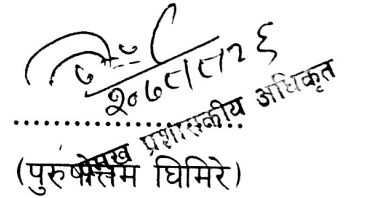 २०७८।८।२६
प्रमुख प्रशासकीय अधिकृत
(पुरुषोत्तम घिमिरे)